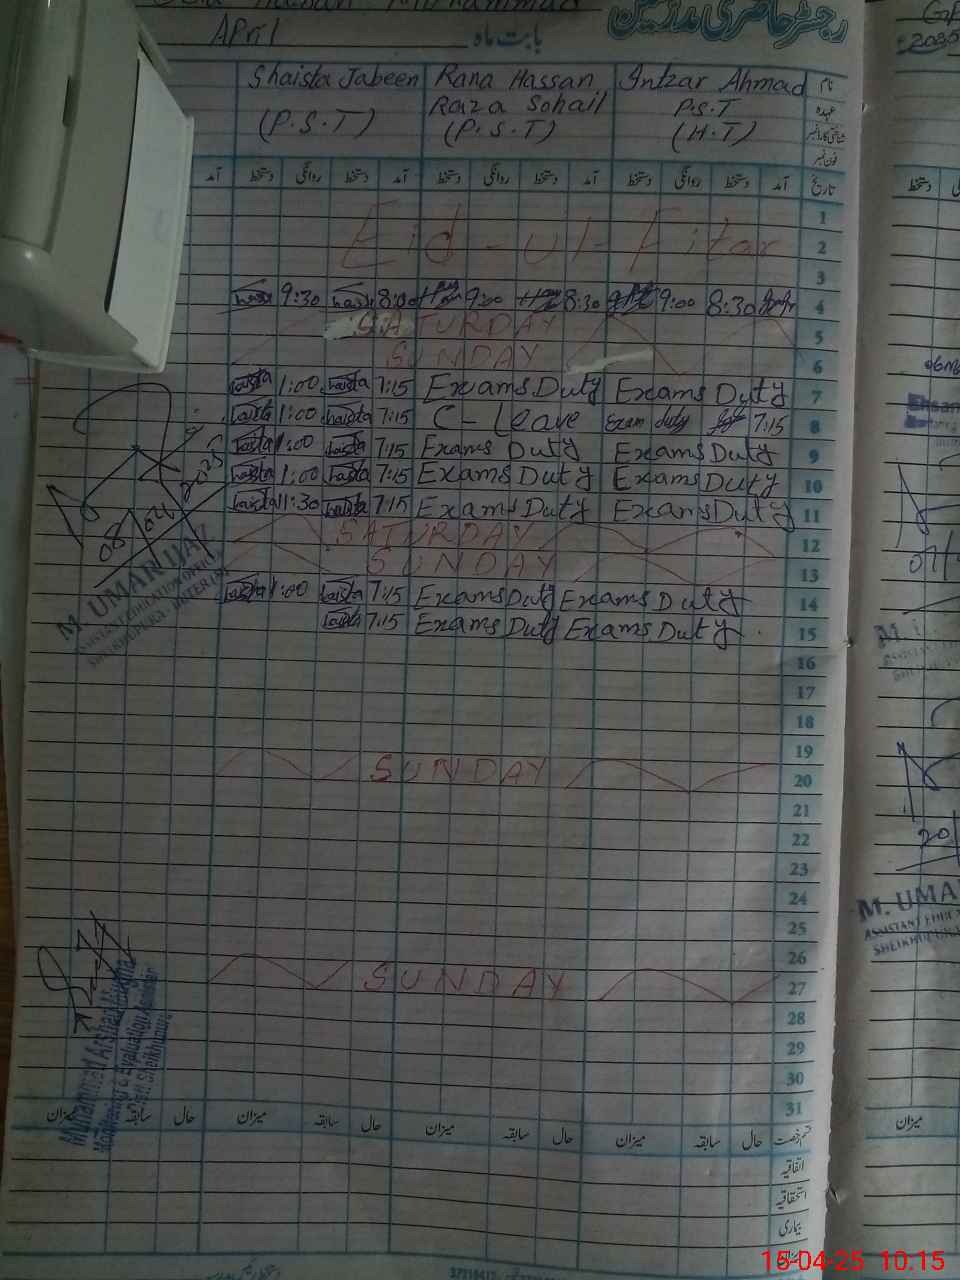 رجسٹر حاضری مدرسین
April بابت ماہ
Shaista Jabeen Rana Hassan Intzar Ahmad نام
Raza Sohail P.S.T عہدہ
(P.S.T) (P.S.T) (H.T) شناختی کارڈ نمبر
فون نمبر
آمد دستخط روانگی دستخط آمد دستخط روانگی دستخط آمد دستخط روانگی دستخط آمد تاریخ
1
Eid-ul-Fitar 2
3
9:30 8:00 9:00 8:30 9:00 8:30 4
SATURDAY 5
SUNDAY 6
Shaista 1:00 Shaista 7:15 Exams Duty Exams Duty 7
Shaista 1:00 Shaista 7:15 C-Leave Exam duty 7:15 8
Shaista 1:00 Shaista 7:15 Exams Duty Exams Duty 9
Shaista 1:00 Shaista 7:15 Exams Duty Exams Duty 10
Shaista 11:30 Shaista 7:15 Exams Duty Exams Duty 11
SATURDAY 12
SUNDAY 13
Shaista 1:00 Shaista 7:15 Exams Duty Exams Duty 14
Shaista 7:15 Exams Duty Exams Duty 15
16
17
18
19
SUNDAY 20
21
22
23
24
25
26
SUNDAY 27
28
29
30
31
میزان سابقہ حال میزان سابقہ حال میزان سابقہ حال میزان سابقہ حال قسم رخصت
اتفاقیہ
استحقاقیہ
بیماری
08/04/2025
M. UMAR IJAZ
ASSISTANT EDUCATION OFFICER
SHEIKHUPURA
Muhammad Arshad
Monitoring & Evaluation Assistant
Distt Sheikhupura
2025
دستخط
07/
20/
M. UMAR
ASSISTANT EDUC
SHEIKHUPURA
میزان
15-04-25 10.15